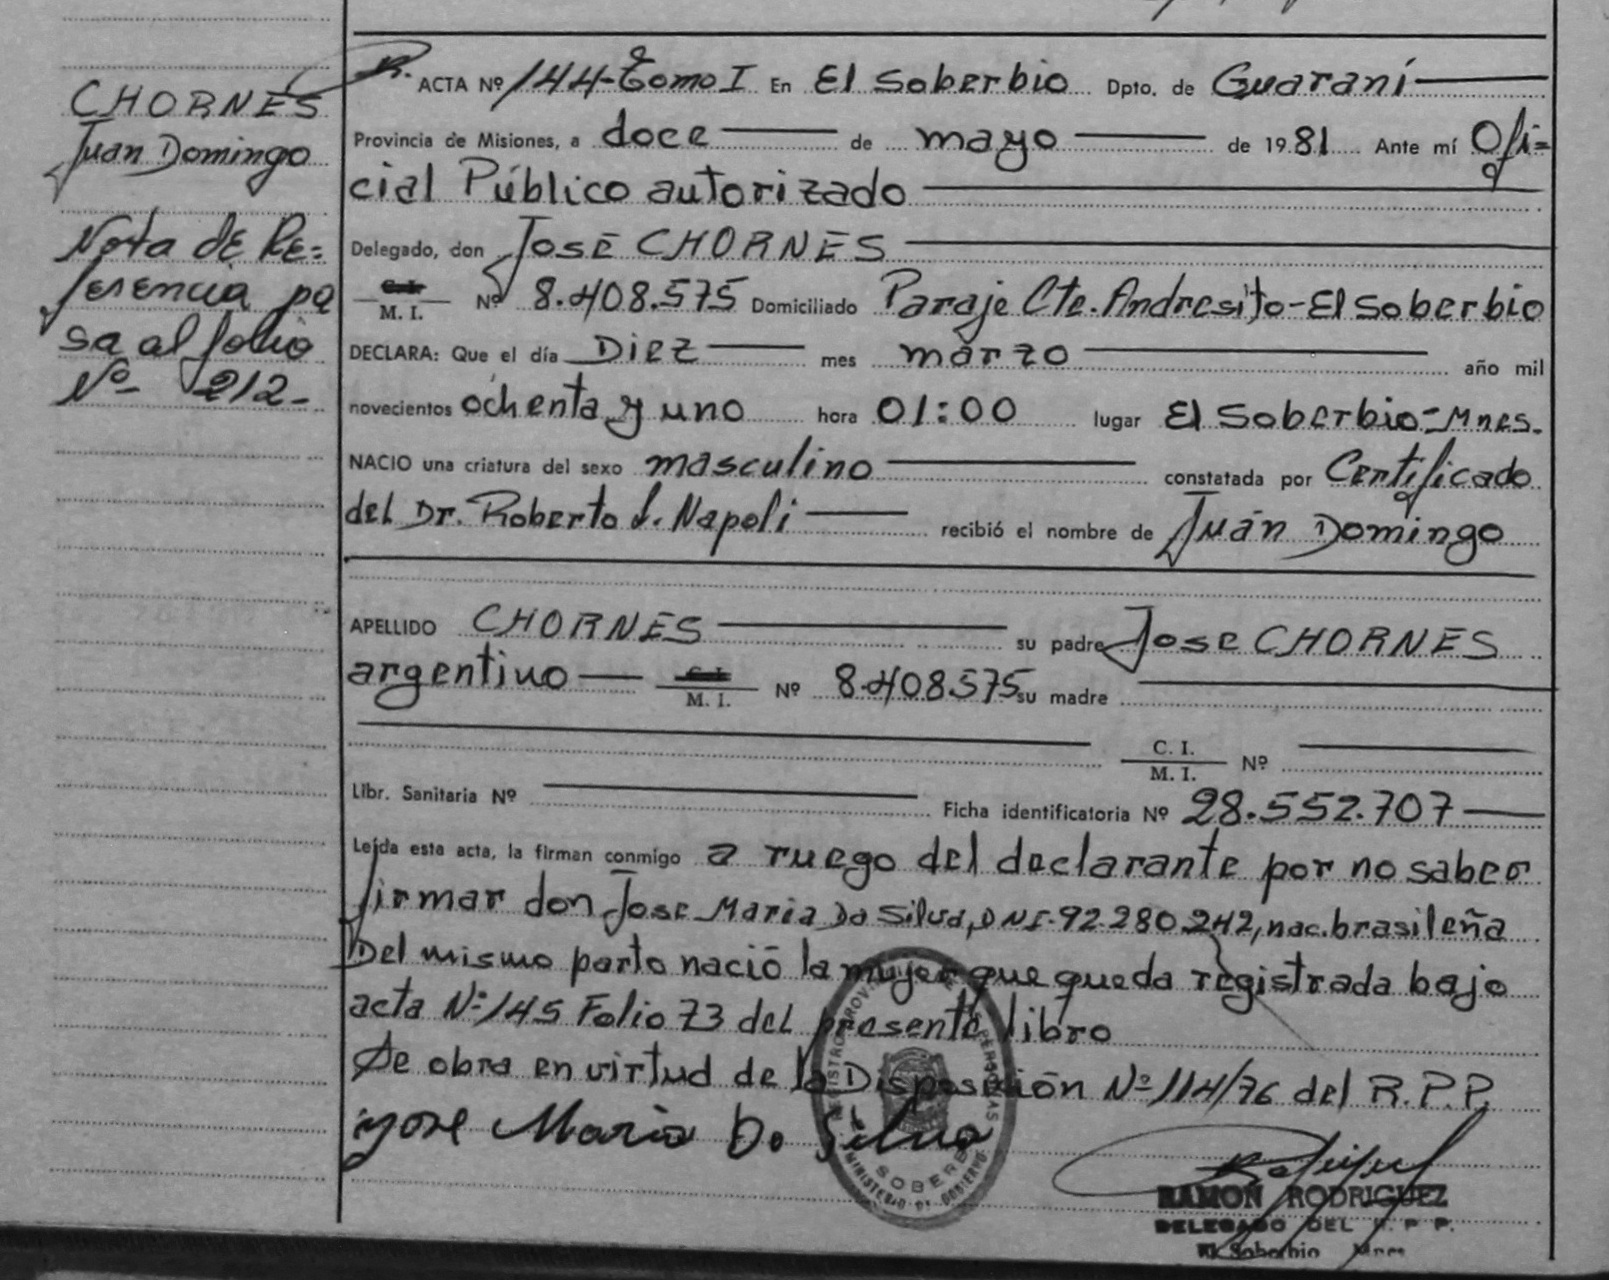 CHORNES
Juan Domingo
Nota de Re=
ferencia pa
sa al folio
Nº 212-
ACTA Nº 144-Tomo I En El Soberbio Dpto. de Guaraní
Provincia de Misiones, a doce de mayo de 1981 Ante mí Ofi=
cial Público autorizado
Delegado, don José CHORNES
C. I. / M. I. Nº 8.408.575 Domiciliado Paraje Cte. Andresito-El Soberbio
DECLARA: Que el día Diez mes marzo año mil
novecientos ochenta y uno hora 01:00 lugar El Soberbio-Mnes.
NACIO una criatura del sexo masculino constatada por Certificado
del Dr. Roberto J. Napoli recibió el nombre de Juan Domingo
APELLIDO CHORNES su padre Jose CHORNES
argentino C. I. / M. I. Nº 8.408.575 su madre
C. I. / M. I. Nº
Libr. Sanitaria Nº Ficha identificatoria Nº 28.552.707
Leída esta acta, la firman conmigo a ruego del declarante por no saber
firmar don Jose Maria Da Silva, DNI-92.280.242, nac. brasileña
Del mismo parto nació la mujer que queda registrada bajo
acta Nº 145 Folio 73 del presente libro
De obra en virtud de la Disposición Nº 114/76 del R.P.P.
jose Maria Da Silva
SOBERB
MINISTERIO DE GOBIERNO
RAMON RODRIGUEZ
DELEGADO DEL R. P. P.
El Soberbio Mnes